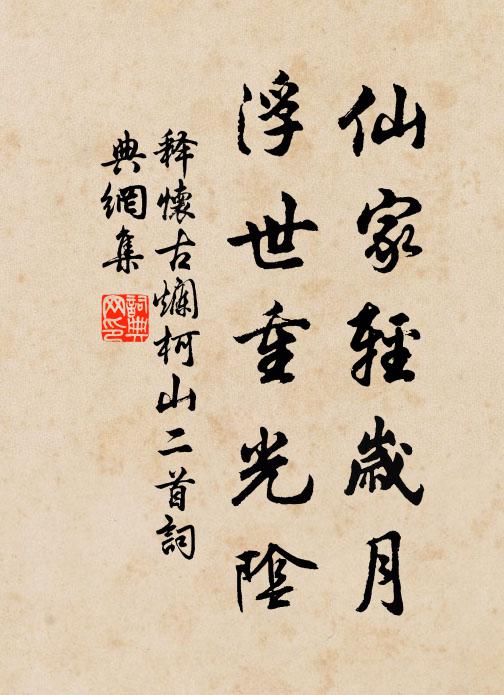 仙家輕歲月
浮世重光陰
释懷古爛柯山二首詞
典網集
詞典網印